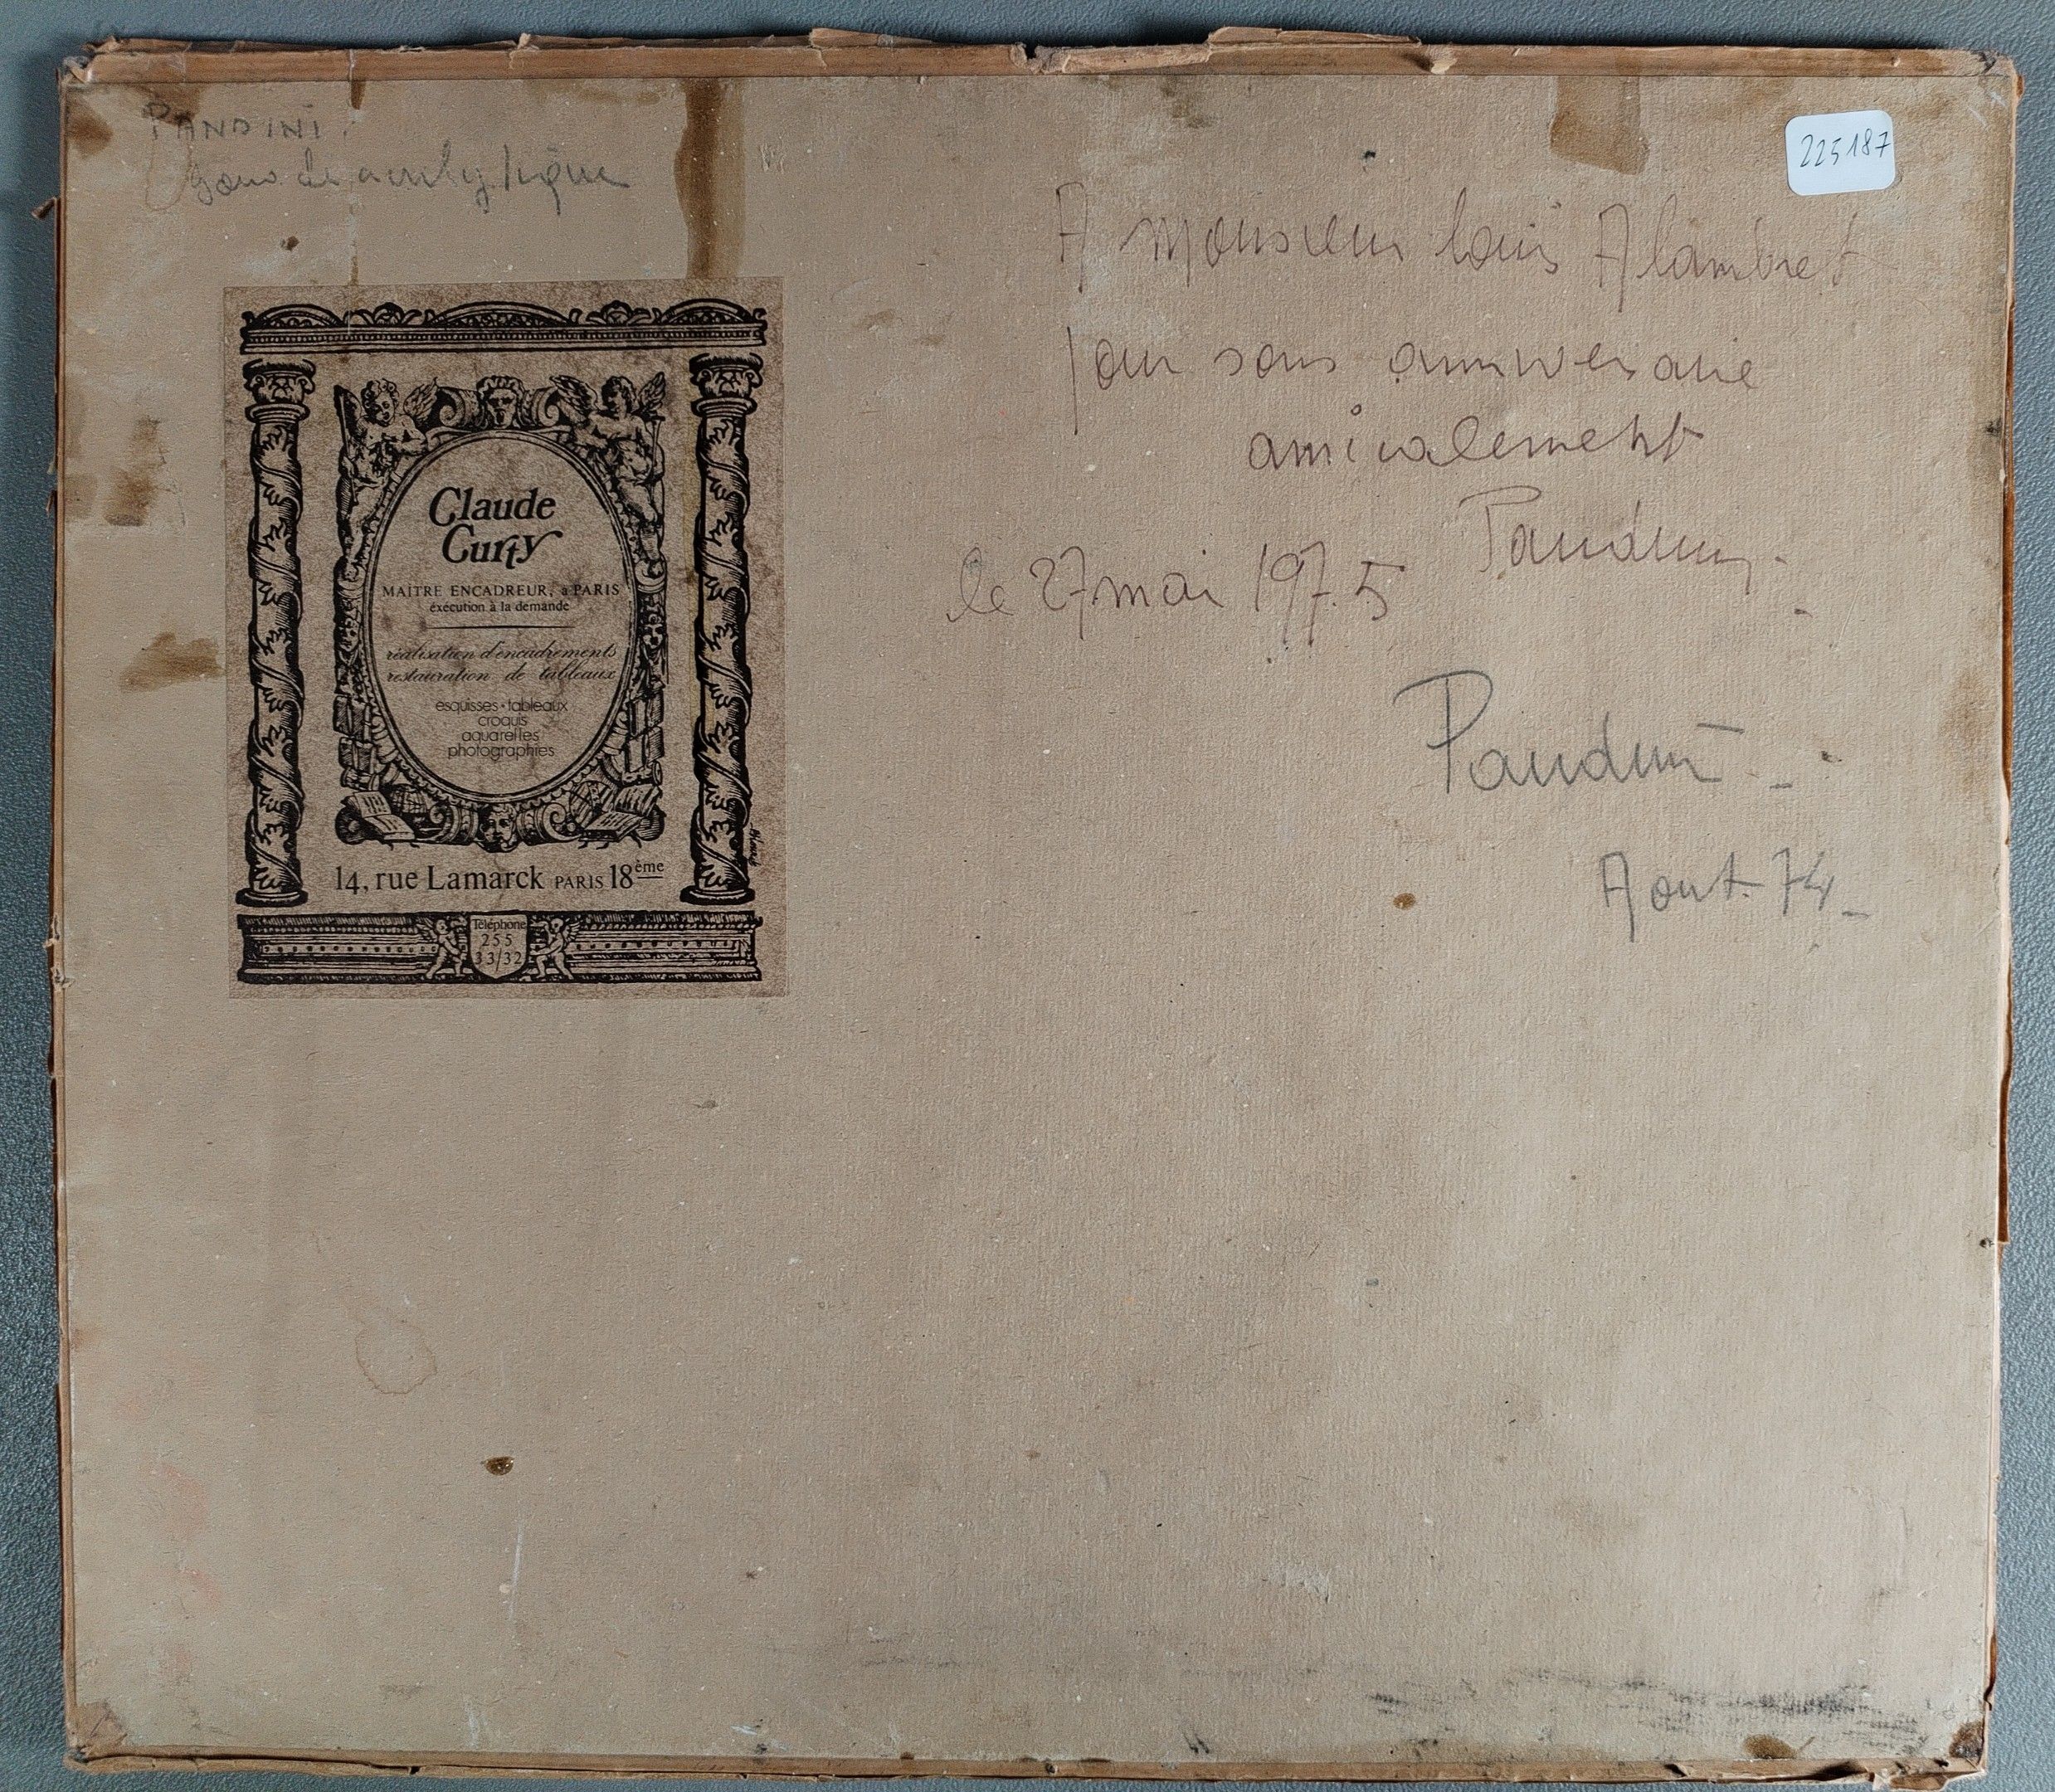 PANDINI.
225187
A Monsieur Louis Alambret
pour sons anniversaire
amicalement
Pandini
le 27 mai 1975
Pandini
Aout 74
Claude
Curty
MAITRE ENCADREUR, a PARIS
éxécution à la demande
réalisation d'encadrements
restauration de tableaux
esquisses • tableaux
croquis
aquarelles
photographies
14, rue Lamarck PARIS 18ème
Téléphone
255
33/32